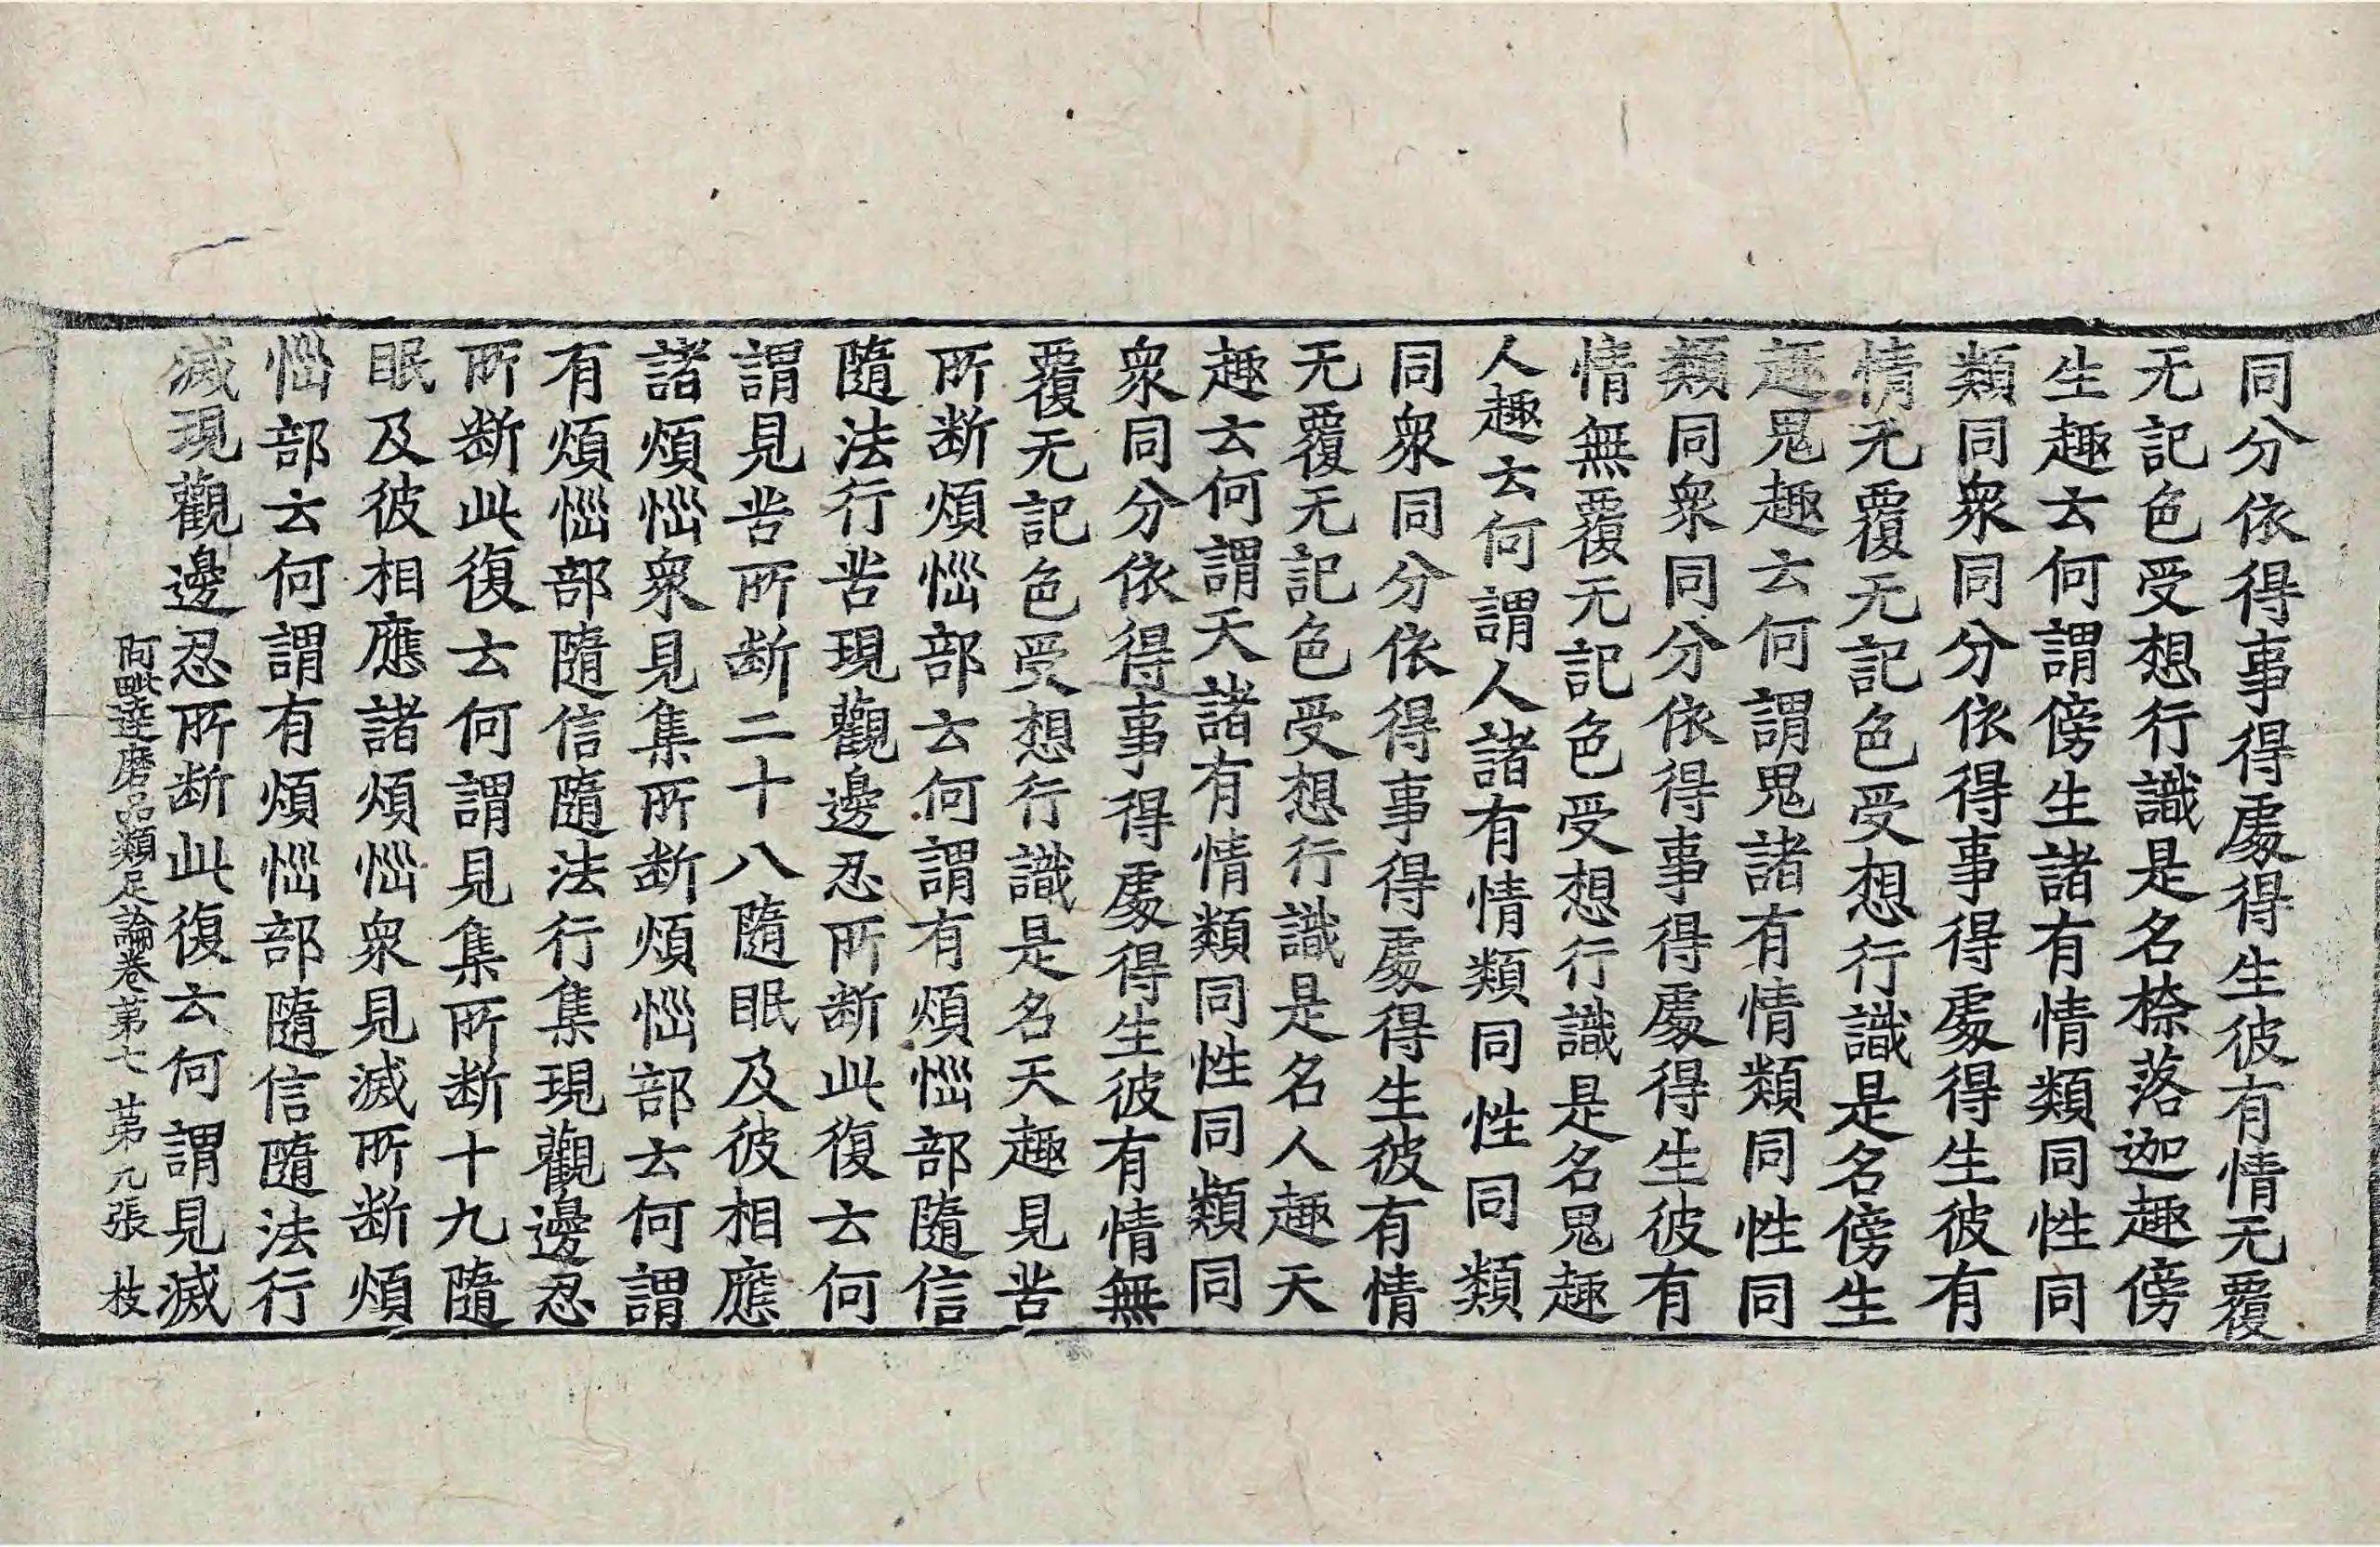 同分依得事得處得生彼有情无覆
无記色受想行識是名捺落迦趣傍
生趣云何謂傍生諸有情類同性同
類同衆同分依得事得處得生彼有
情无覆无記色受想行識是名傍生
趣鬼趣云何謂鬼諸有情類同性同
類同衆同分依得事得處得生彼有
情無覆无記色受想行識是名鬼趣
人趣云何謂人諸有情類同性同類
同衆同分依得事得處得生彼有情
无覆无記色受想行識是名人趣天
趣云何謂天諸有情類同性同類同
衆同分依得事得處得生彼有情無
覆无記色受想行識是名天趣見苦
所断煩惱部云何謂有煩惱部隨信
隨法行苦現觀邊忍所断此復云何
謂見苦所断二十八隨眠及彼相應
諸煩惱衆見集所断煩惱部云何謂
有煩惱部隨信隨法行集現觀邊忍
所断此復云何謂見集所断十九隨
眠及彼相應諸煩惱衆見滅所断煩
惱部云何謂有煩惱部隨信隨法行
滅現觀邊忍所断此復云何謂見滅
阿毗達磨品類足論卷第七 第九張 枝